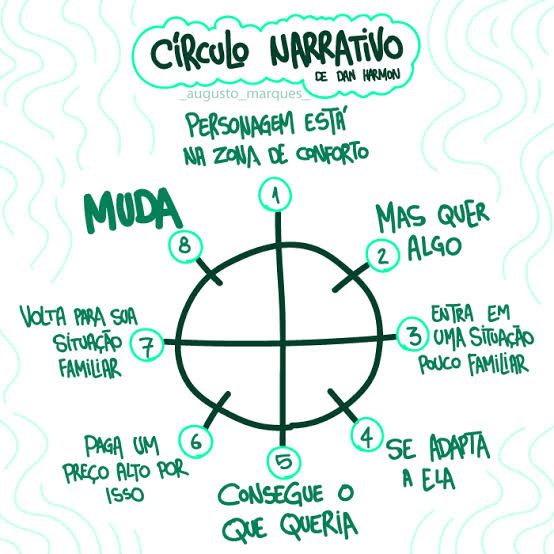 CÍRCULO NARRATIVO
DE DAN HARMON
_augusto_marques_
PERSONAGEM ESTÁ
NA ZONA DE CONFORTO
1
MAS QUER
ALGO
2
ENTRA EM
UMA SITUAÇÃO
POUCO FAMILIAR
3
SE ADAPTA
A ELA
4
5
CONSEGUE O
QUE QUERIA
6
PAGA UM
PREÇO ALTO POR
ISSO
7
VOLTA PARA SUA
SITUAÇÃO
FAMILIAR
8
MUDA